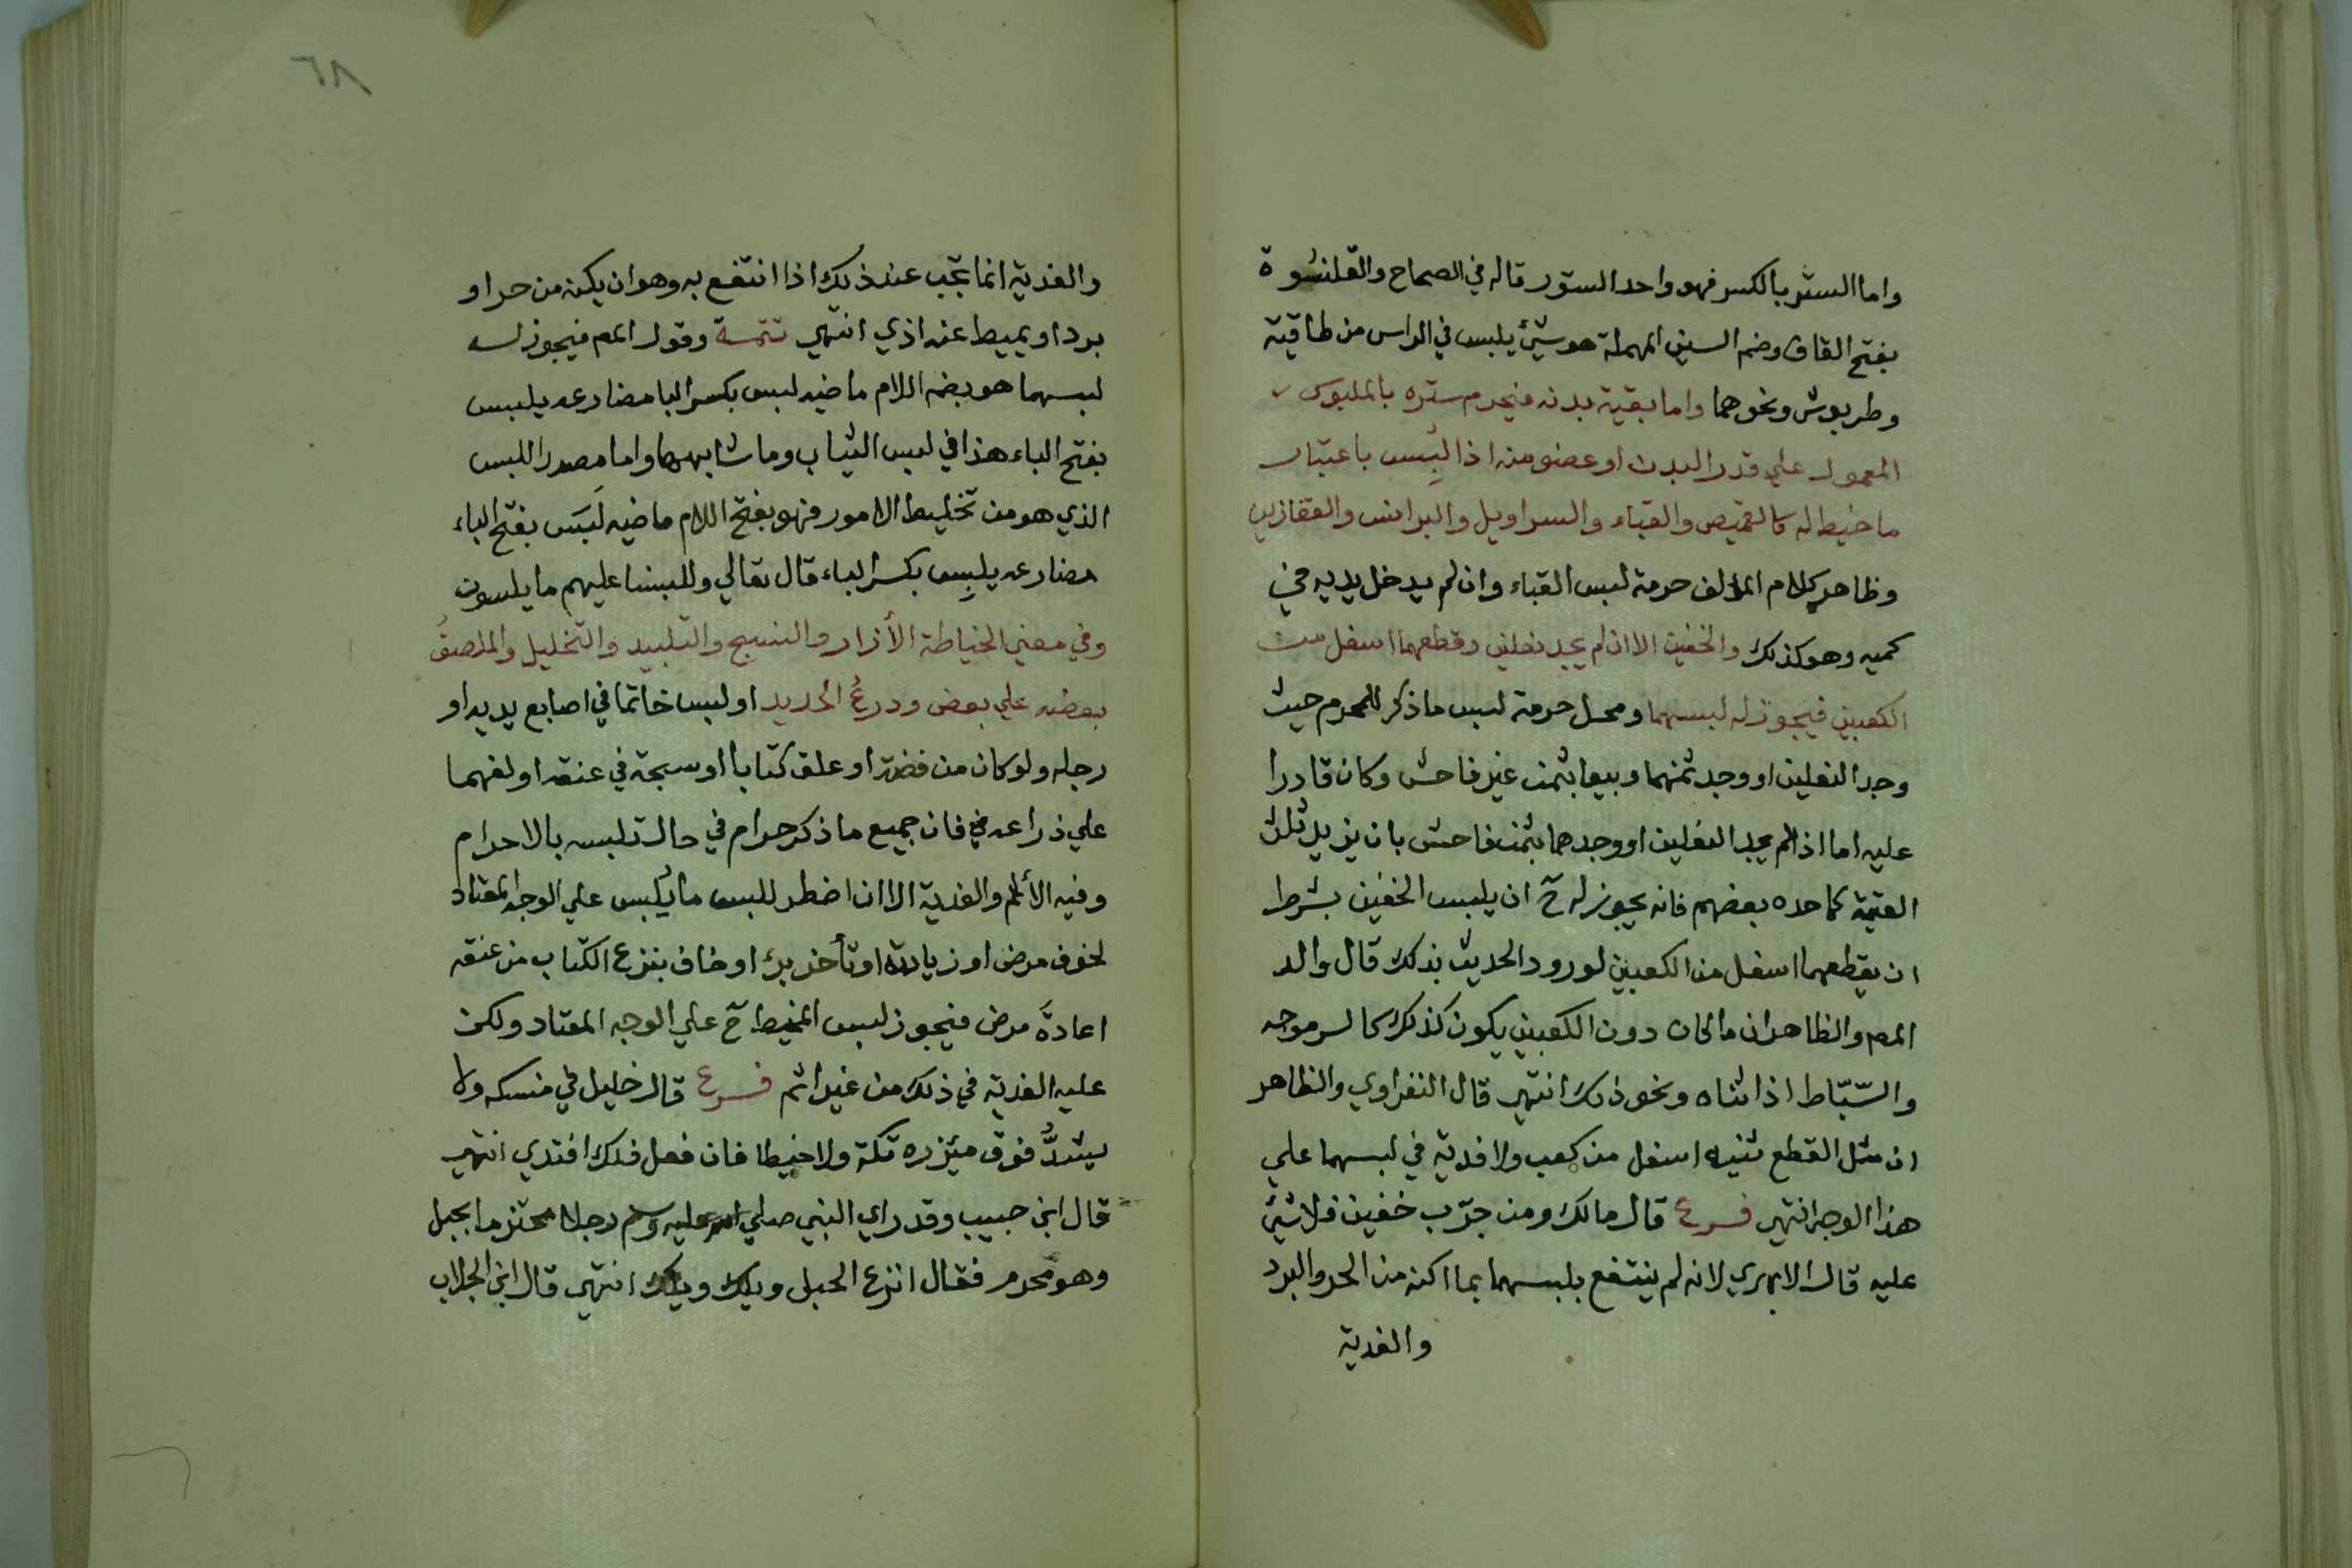 واما الستر بالكسر فهو واحد الستور قاله في الصحاح والقلنسوة
بفتح القاف وضم السين المهملة هو شيئ يلبس في الراس من طاقية
وطربوش ونحوهما واما بقية بدنه فيحرم ستره بالملبوس
المعمول علي قدر البدن او عضو منه اذا لبس باعتبار
ما خيط له كالقميص والقباء والسراويل والبرانس والقفازين
وظاهر كلام المؤلف حرمة لبس القباء وان لم يدخل يديه في
كميه وهو كذلك والخفين الا ان لم يجد نعلين وقطعهما اسفل من
الكعبين فيجوز له لبسهما ومحل حرمة لبس ما ذكر للمحرم حيث
وجد النعلين او وجد ثمنهما وبيعا بثمن غير فاحش وكان قادرا
عليه اما اذا لم يجد النعلين او وجدهما بثمن فاحش بان يزيد ثلث
القيمة كما حده بعضهم فانه يجوز له ح ان يلبس الخفين بشرط
ان يقطعهما اسفل من الكعبين لورود الحديث بذلك قال والد
المص والظاهر ان ما كان دون الكعبين يكون كذلك كالسرموجه
والسّبّاط اذا ثناه ونحو ذلك انتهي قال النفراوي والظاهر
ان مثل القطع ثنيه اسفل من كعب ولا فدية في لبسهما علي
هذا الوجه انتهي فرع قال مالك ومن جرّب خفين فلا شيئ
عليه قال الابهري لانه لم ينتفع بلبسهما بما اكنه من الحر والبرد
والفدية
٦٨
والفدية انما تجب عند ذلك اذا انتفع به وهو ان يكنه من حر او
برد او يميط عنه اذي انتهي تتمة وقول المص فيجوز له
لبسهما هو بضم اللام ماضيه لبس بكسر البا مضارعه يلبس
بفتح الباء هذا في لبس الثياب وما شابهها واما مصدر اللبس
الذي هو من تخليط الامور فهو بفتح اللام ماضيه لَبَس بفتح الباء
مضارعه يلبِس بكسر الباء قال تعالي وللبسنا عليهم ما يلبسون
وفي معني الخياطة الأزرار والنسج والتلبيد والتخليل والملصقُ
بعضه علي بعض ودرعُ الحديد او لبس خاتما في اصابع يديه او
رجله ولو كان من فضة او علق كتابا او سبحة في عنقه او لفهما
علي ذراعه فان جميع ما ذكر حرام في حال تلبسه بالاحرام
وفيه الأثم والفدية الا ان اضطر للبس ما يُلبس علي الوجه المعتاد
لخوف مرض او زيادته او تأخر برء او خاف بنزع الكتاب من عنقه
اعادة مرض فيجوز لبس المخيط ح علي الوجه المعتاد ولكن
عليه الفدية في ذلك من غير اثم فرع قال خليل في منسكه ولا
يشدُّ فوق مئزره تكة ولا خيطا فان فعل ذلك افتدي انتهي
قال ابن حبيب وقد راي النبي صلي الله عليه وسلم رجلا محتزما بحبل
وهو محرم فقال انزع الحبل ويلك ويلك انتهي قال ابن الجلاب